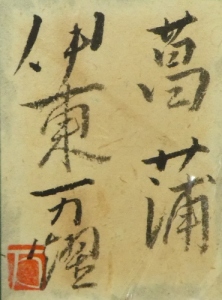 菖蒲
伊東万燿